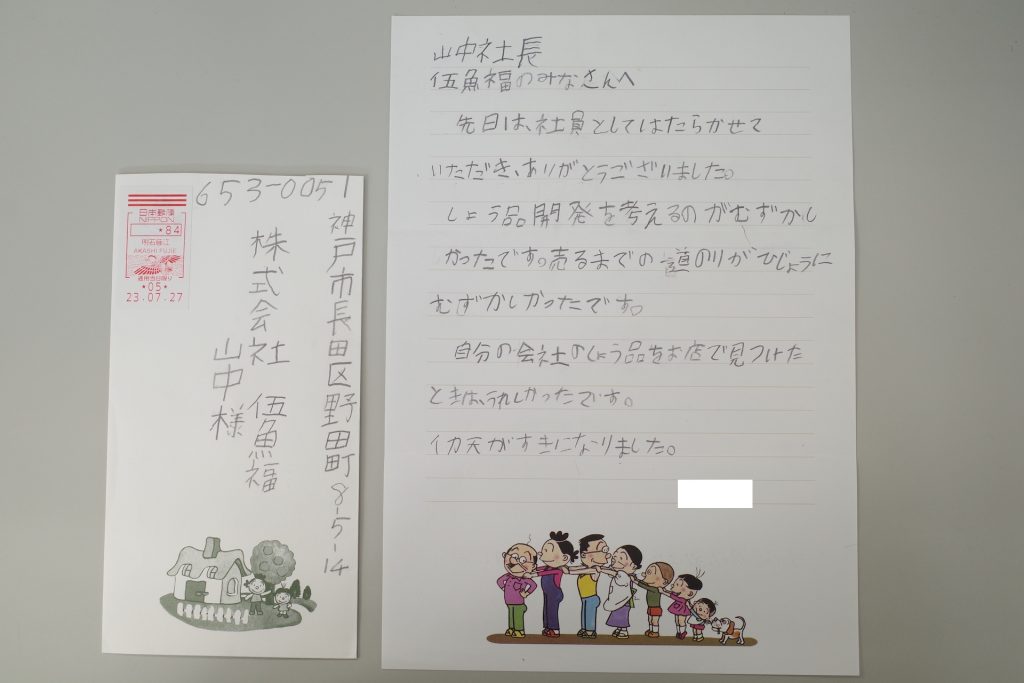 653-0051
日本郵便
NIPPON
★84
明石藤江
AKASHI FUJIE
★05★
23.07.27
神戸市長田区野田町8-5-14
株式会社 伍魚福
山中様
山中社長
伍魚福のみなさんへ
先日は、社員としてはたらかせて
いただき、ありがとうございました。
しょう品開発を考えるのがむずかし
かったです。売るまでの道のりがひじょうに
むずかしかったです。
自分の会社のしょう品をお店で見つけた
ときは、うれしかったです。
イカ天がすきになりました。